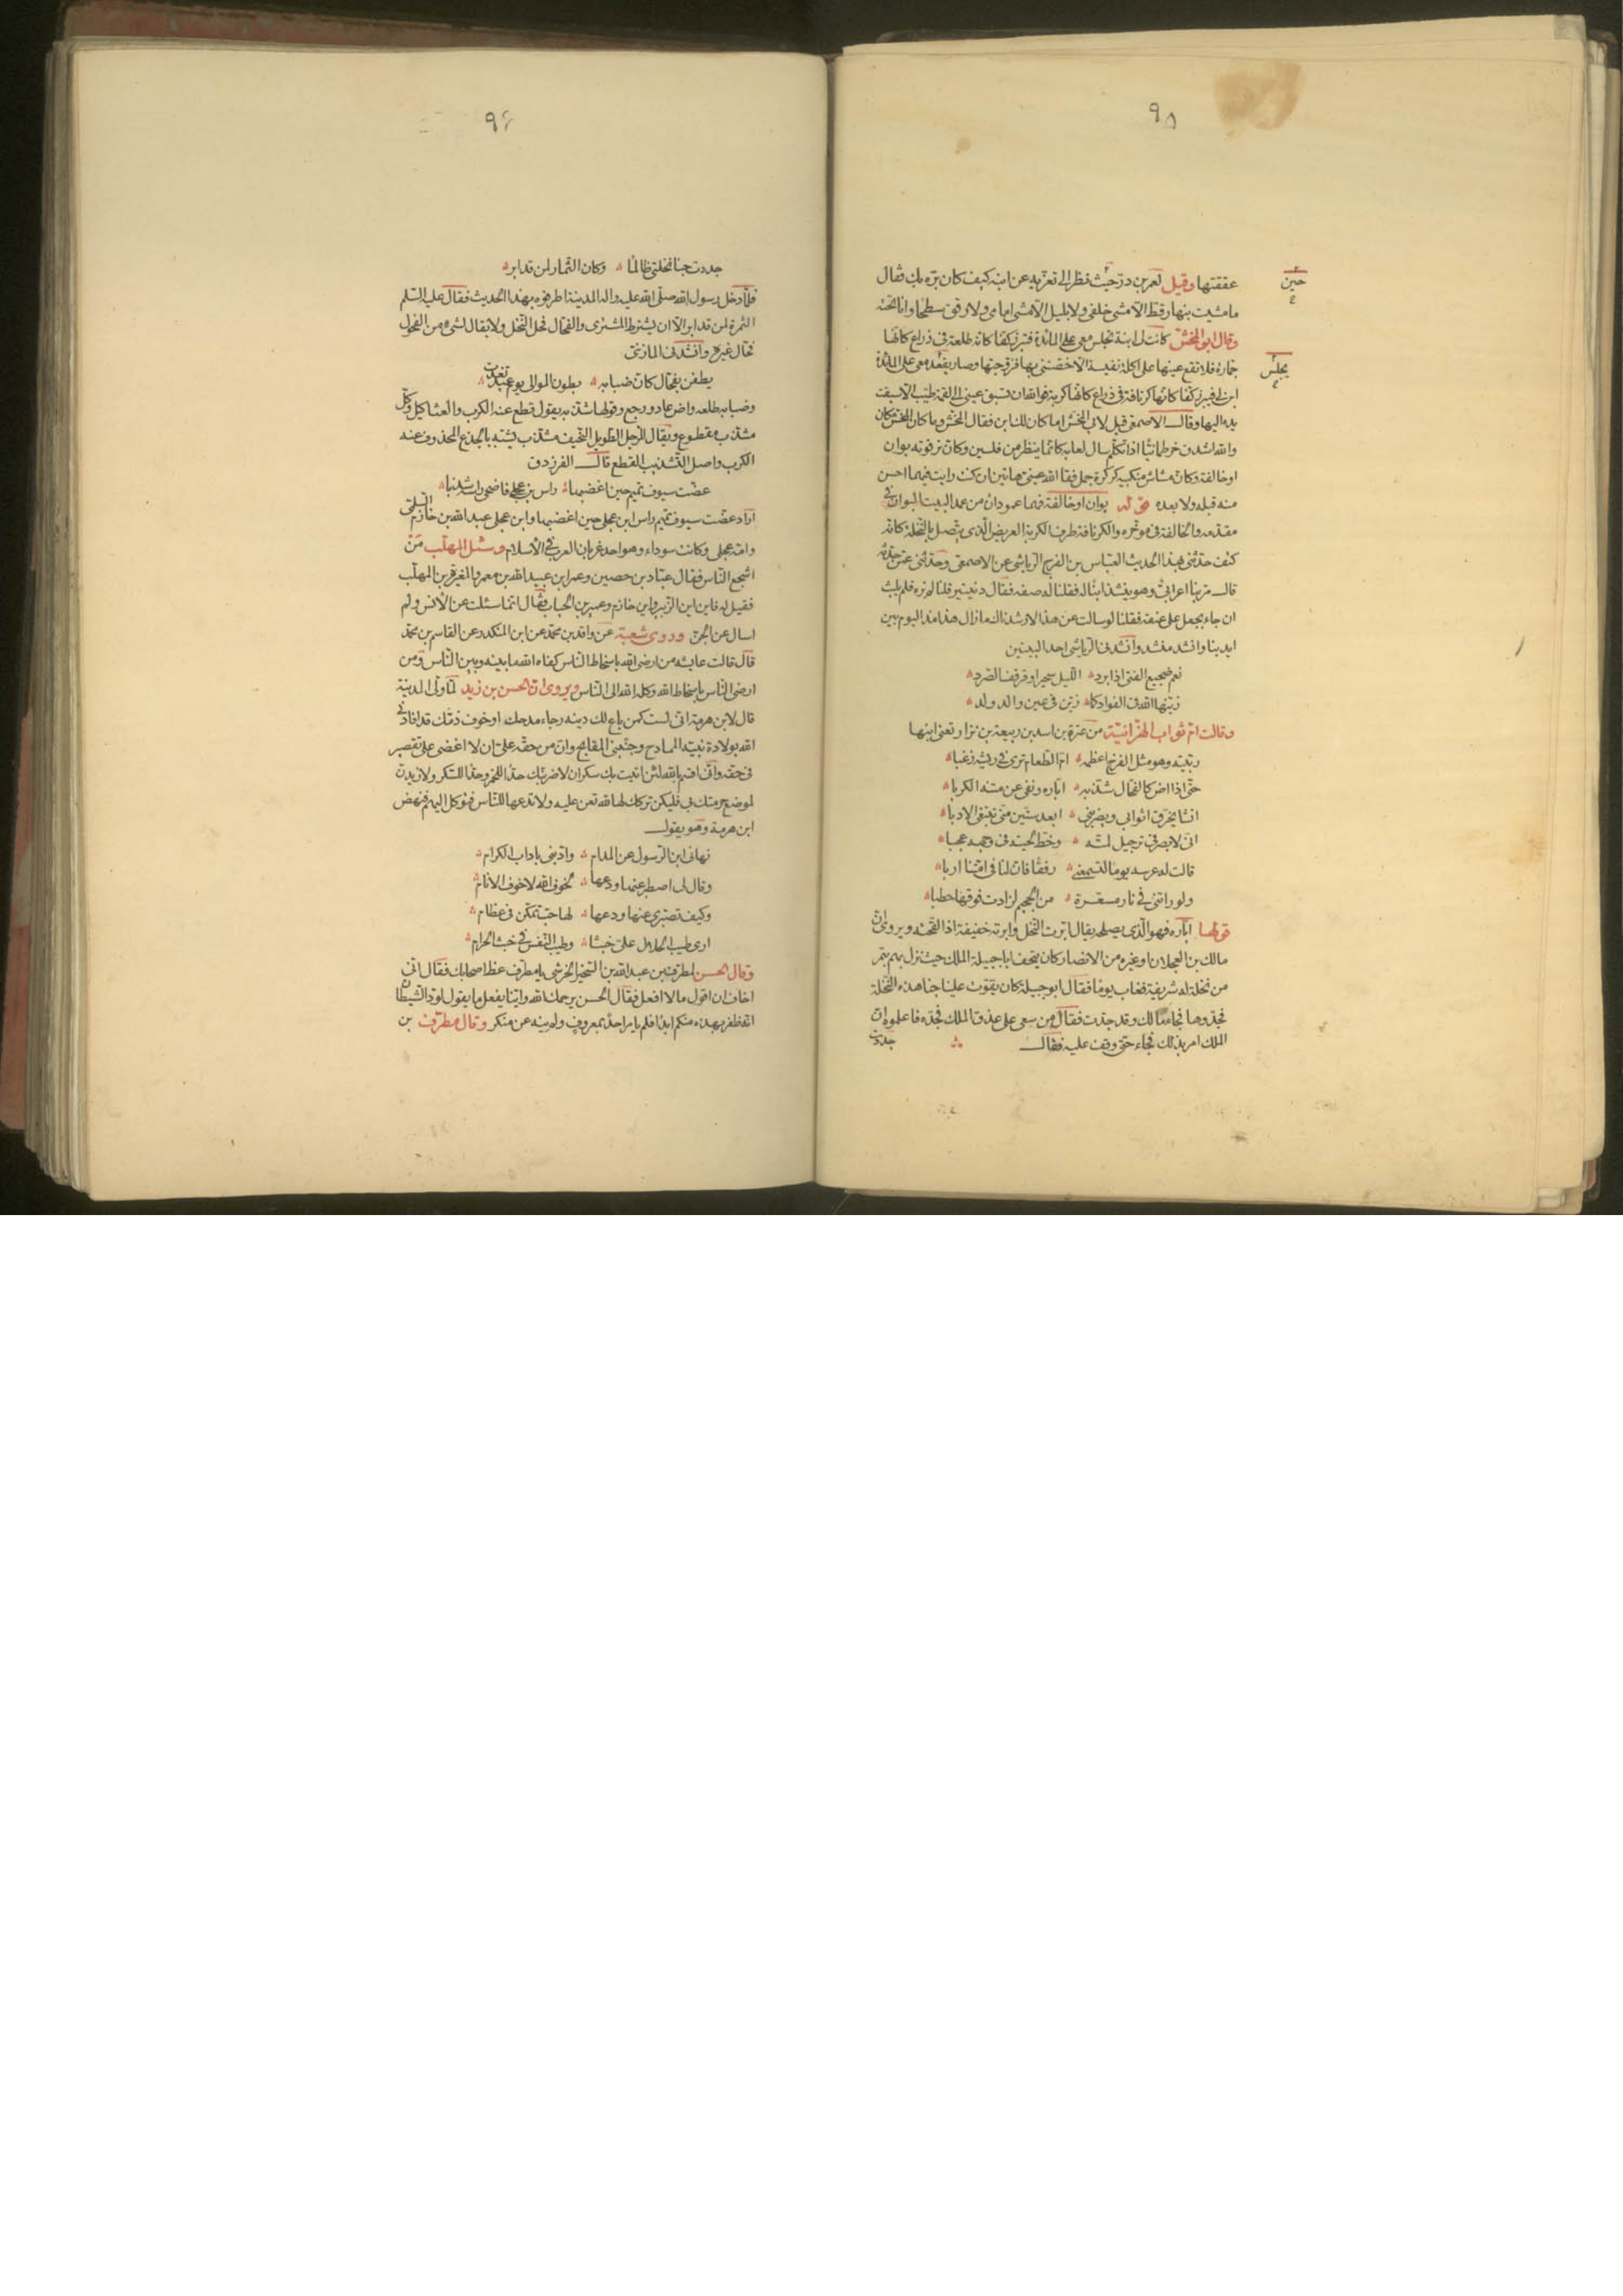 ٩٥
عققتها وقيل لعمر بن ذر حيث نظر الى تعزيه عن ابنه كيف كان بره بك فقال
حين
ما مشيت بنهار قط الا مشى خلفى ولا بليل الا مشى امامى ولا رقى سطحا وانا تحته
وقال ابو المخش كانت لى ابنة تجلس معى على المائدة فتبرز كفا كانه طلعة فى ذراع كانها
جمارة فلا تقع عينها على اكلة نفيسة الا خصتنى بها فزوجتها وصار يقعد معى على المائدة
يجلس
ابن لى فيبرز كفا كانها كرنافة فى ذراع كانها كربة فوالله ان تسبق عينى الى لقمة طيبة الا سبقت
يده اليها وقال الاصمعى قيل لابى المخش اما كان لك ابن فقال المخش وما كان المخش كان
والله اشدق خرطمانيا اذا تكلم سال لعابه كانما ينظر من فلسين وكان ترقوته بوان
او خالفة وكان مشاش منكبيه كركرة جمل فقأ الله عينى هاتين ان كنت رايت فيهما احسن
منه قبله ولا بعده قوله بوان او خالفة فهما عمودان من عمد البيت البوان فى
مقدمه والخالفة فى موخره والكرنافة طرف الكربة العريض الذى يتصل بالنخلة كانه
كتف حدثنى بهذا الحديث العباس بن الفرج الرياشى عن الاصمعى وحدثنى عمن حدثه
قال مر بنا اعرابى وهو ينشد ابنا له فقلنا له صفه فقال دنينير قلنا لم نره فلم يلبث
ان جاء بجعل على عنقه فقلنا لو سالت عن هذا لارشدناك ما زال هذا منذ اليوم بين
ايدينا وانشد منشد وانشدنى الرياشى احد البيتين
نعم ضجيع الفتى اذا برد الليل سحيرا وقرقف الصرد
زينها الله فى الفواد كما زين فى عين والد ولد
وقالت ام ثواب الهزانية من عنزة بن اسد بن ربيعة بن نزار تعنى ابنها
ربيته وهو مثل الفرخ اعظمه ام الطعام ترى فى ريشه زغبا
حتى اذا اض كالفحال شذبه اباره ونفى عن متنه الكربا
انشا يخرق اثوابى ويضربنى ابعد ستين منى تبتغى الادبا
انى لابصر فى ترجيل لمته وخط لحيته فى وجهه عجبا
قالت له عرسه يوما لتسمعنى رفقا فان لنا فى امنا اربا
ولو راتنى فى نار مسعرة من الجحيم لزادت فوقها حطبا
قولها اباره فهو الذى يصلحه يقال ابرت النخل وابرته خفيفة اذا لقحته ويروى ان
مالك بن العجلان او غيره من الانصار كان يتحف ابا جبيلة الملك حيث نزل بهم بتمر
من نخلة له شريفة فغاب يوما فقال ابو جبيلة كان يقوت علينا جنا هذه النخلة
فجذوها فجاء مالك وقد جذت فقال من سعى على عذق الملك فجذه فاعلموه ان
الملك امر بذلك فجاء حتى وقف عليه فقال
جددت
٩٦
جددت جنا نخلتى ظالما وكان الثمار لمن قد ابر
فلما دخل رسول الله صلى الله عليه واله المدينة اطرفوه بهذا الحديث فقال عليه السلم
الثمرة لمن قد ابر الا ان يشترط المشترى والفحال فحل النخل ولا يقال لشىء من الفحول
فحال غيره وانشدنى المازنى
يطفن بفحال كان ضبابه بطون الموالى يوم عيد تغدت
وضبابه طلعه واض عاد ورجع وقولها شذبه يقول قطع عنه الكرب والعثاكيل وكل
مشذب مقطوع ويقال للرجل الطويل النحيف مشذب يشبه بالجذع المحذوف عنه
الكرب واصل التشذيب القطع قال الفرزدق
عضت سيوف تميم حين اغضبها راس بن عجلى فاضحى راسه شذبا
اراد عضت سيوف تميم راس ابن عجلى حين اغضبها وابن عجلى عبد الله بن خازم السلمى
وامه عجلى وكانت سوداء وهو احد غربان العرب فى الاسلام وسئل المهلب من
اشجع الناس فقال عباد بن حصين وعمر ابن عبيد الله بن معمر والمغيرة بن المهلب
فقيل له فاين ابن الزبير وابن خازم وعمير بن الحباب فقال انما سئلت عن الانس ولم
اسال عن الجن وروى شعبة عن واقد بن محمد عن ابن المنكدر عن القاسم بن محمد
قال قالت عايشه من ارضى الله باسخاط الناس كفاه الله ما بينه وبين الناس ومن
ارضى الناس باسخاط الله وكله الله الى الناس ويروى ان الحسن بن زيد لما ولى المدينة
قال لابن هرمة انى لست كمن باع لك دينه رجاء مدحك او خوف ذمك قد افادنى
الله بولادة نبيه الممادح وجنبنى المقابح وان من حقه على ان لا اغضى على تقصير
فى حقه وانى اقسم بالله لئن اتيت بك سكران لاضربنك حدا للخمر وحدا للسكر ولازيدن
لموضع حرمتك بى فليكن تركك لها لله تعن عليه ولا تدعها للناس فتوكل اليهم فنهض
ابن هرمة وهو يقول
نهانى ابن الرسول عن المدام وادبنى باداب الكرام
وقال لى اصطبر عنها ودعها لخوف الله لا خوف الانام
وكيف تصبرى عنها ودعها لها حب تمكن فى عظام
ارى طيب الحلال على خبثا وطيب النفس فى خبث الحرام
وقال الحسن لمطرف بن عبد الله بن الشخير الحرشى يا مطرف عظ اصحابك فقال انى
اخاف ان اقول ما لا افعل فقال الحسن يرحمك الله واينا يفعل ما يقول لود الشيطان
انه ظفر بهذه منكم ابدا فلم يامر احد بمعروف ولم ينه عن منكر وقال مطرف بن